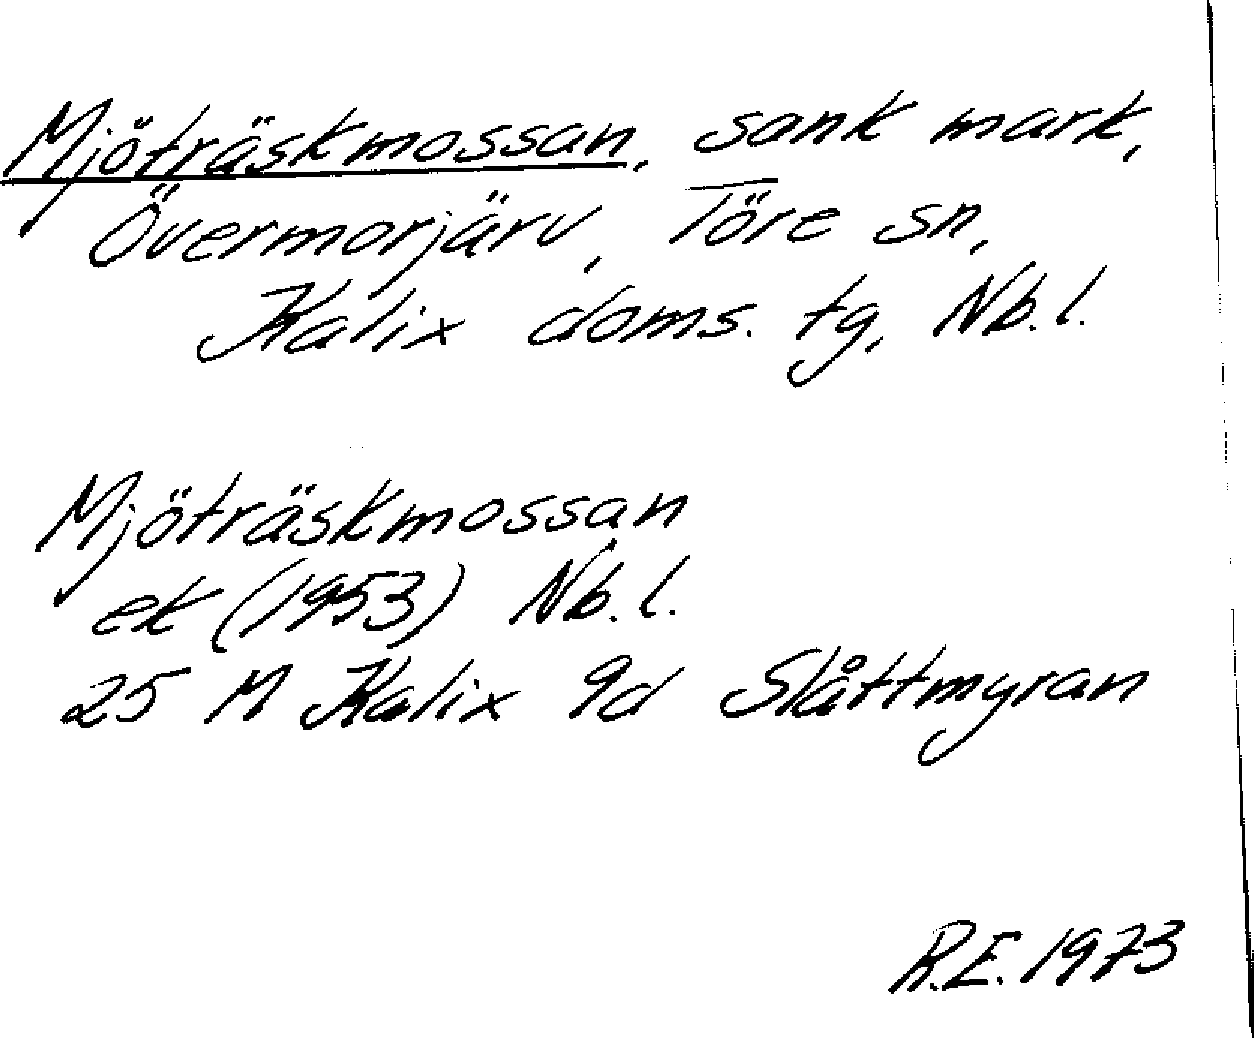 Mjöträskmossan, sank mark,
Övermorjärv, Töre sn,
Kalix doms. tg, Nb.l.
Mjöträskmossan
ek (1953) Nb.l.
25 M Kalix 9d Slåttmyran
R.E. 1973